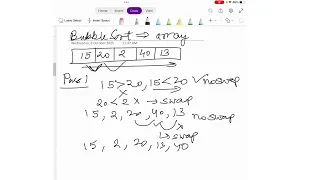 Bubble Sort ⇒ array
15 20 2 40 13
Pass 1
15 > 20, 15 < 20 ✓ no swap
20 < 2 x → swap
15, 2, 20, 40, 13 no swap
x
↳ swap
15, 2, 20, 13, 40